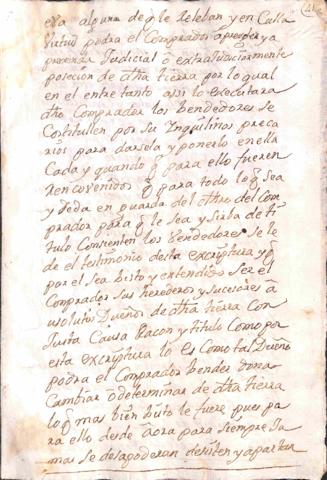 esa alguna de q̃ le seleban y en Cuia
Virtud podra el Comprador aprender ya
prenenza Judicial o extraludicialmente
posecion de dĥa tierra por lo qual
en el entre tanto assi lo executara
dĥo Comprador los bendedores se
Costitullen por ser Inquilinos preca
rios para darsela y ponerlo en ella
Cada y quando q̃ para ello fueren
Reconvenidos q̃ para todo lo q̃ sea
y Ueda en guarda del dĥo del Com
prador para q̃ le sea y sirba de ti
tulo Comrenten los bendedores se le
de el testimonio desta excriptura y q̃
por el sea bisto y entendido ser el
Comprador sus herederos y sucesores a
usolutos Dueños de dĥa tierra Con
Justa Causa Racon y titulo Como por
esta excriptura lo es Como tal Dueño
podra el Comprador bender dona
Cambiar o determinar de dĥa tierra
lo q̃ mas bien bisto le fuere pues pa
ra ello desde aora para siempre Ja
mas se desapoderan desisten y apartan